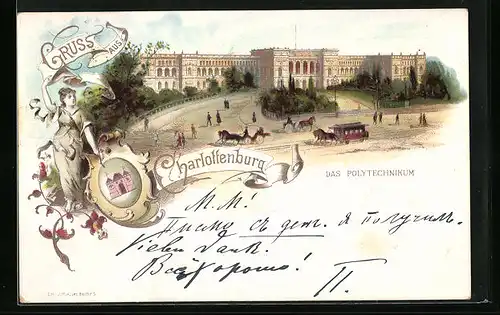 GRUSS AUS
Charlottenburg
DAS POLYTECHNIKUM
М. М.!
Письмо съ дет. я получилъ.
Vielen Dank.
Всё хорошо!
П.